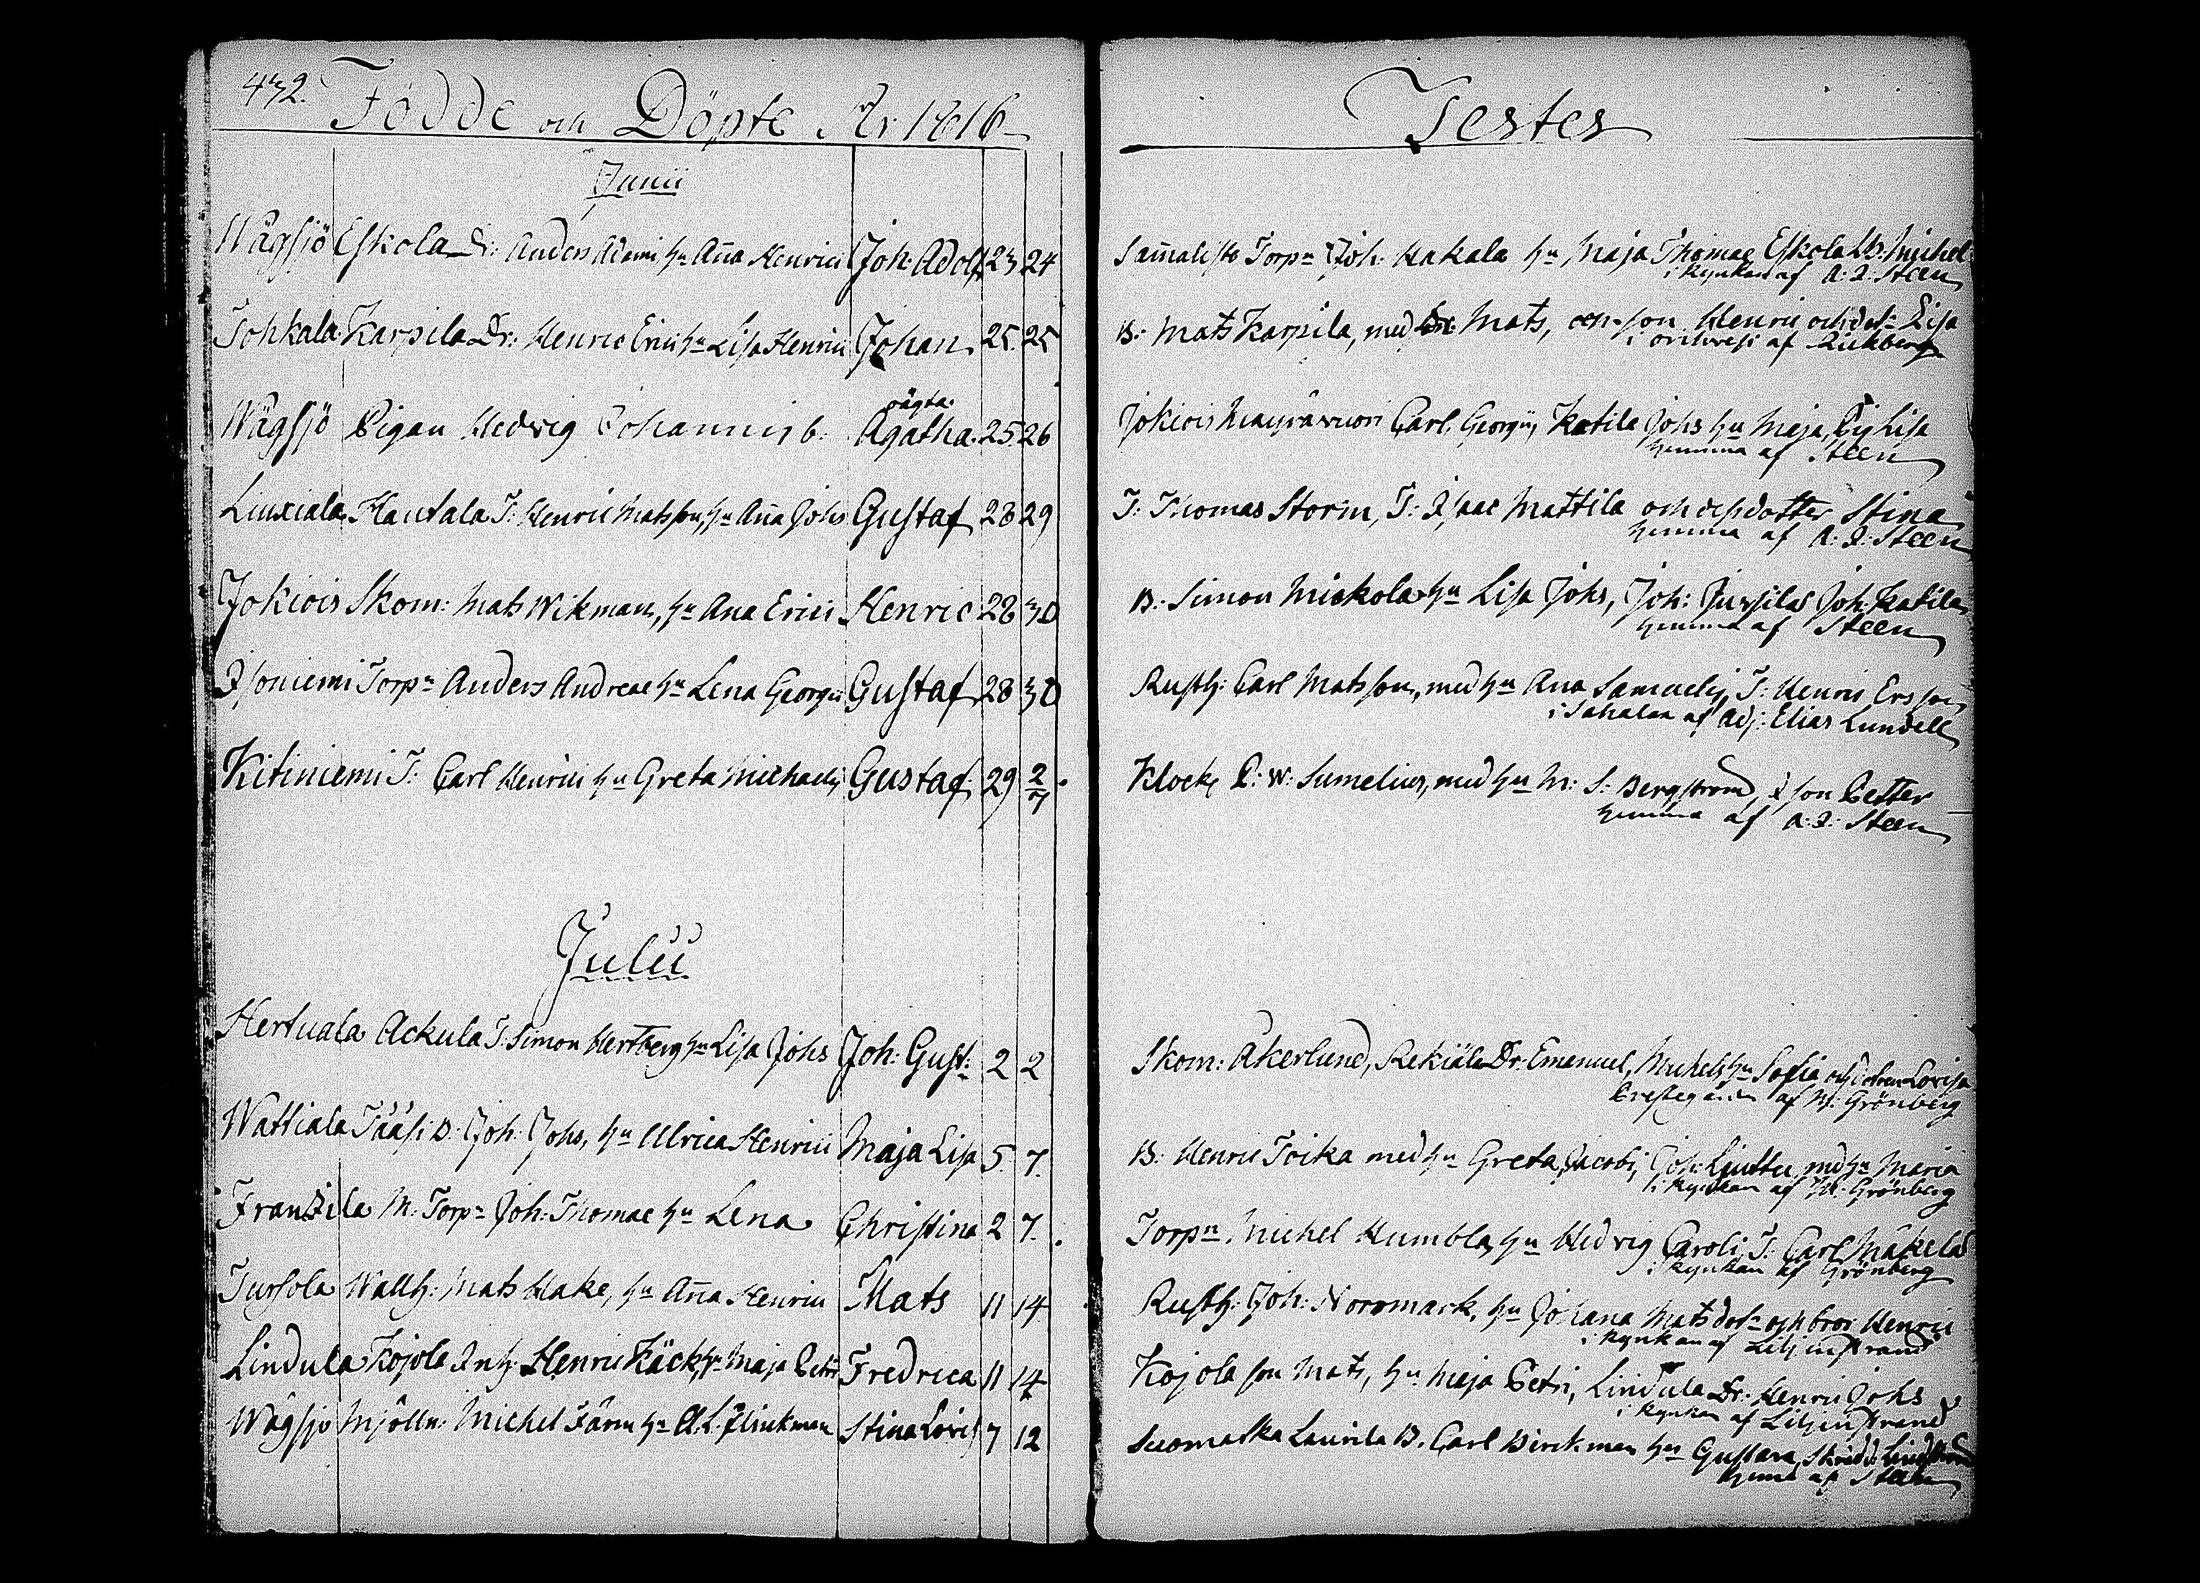 432. Födde och Döpte År 1816
Junii
Wågsjö Eskola Dr: Anders Adami hu Aña Henrici Joh: Adolf 23 24
Tohkala Karpila Dr: Henric Erici hu Lisa Henrici Johan 25 25
oägta
Wågsjö Pigan Hedvig Johannis b. Agatha 25 26
Liuxiala Hautala T: Henric Matsson, hu Aña Johs Gustaf 28 29
Jokiois Skom: Mats Wikman, hu Ana Erici Henric 28 30
Isoniemi Torpn Anders Andreae hu Lena Georgii Gustaf 28 30
Kitiniemi T: Carl Henrici hu Greta Michaelis Gustaf 29 2/7
Julii
Hertuala Ackula T: Simon Hertberg hu Lisa Johs Joh: Gust: 2 2
Wattiala Tääsi B: Joh: Johs, hu Ulrica Henrici Maja Lisa 5 7
Franzila M. Torpn Joh: Thomae hu Lena Christina 2 7
Tursola Wallh: Mats Hake, hu Aña Henrici Mats 11 14
Lindula Kojola Inh: Henric Käck, hu Maja Petri Fredrica 11 14
Wågsjö Mjölln: Michel Färm hu A. L. Flinkman Stina Lovis 7 12
Testes
Sam̃alisto Torpn Joh: Hakala hu, Maja Thomae Eskola B: Michel
i kyrkan af A: I: Steen
B: Mats Karpila, med Mats, son Henric och dotr Lisa
i af
Jokiois Carl Georgii, Katila Johs hu Maja, Pig Lisa
hemma af Steen
T: Thomas Storm, T: Isaac Mattila och dess dotter Stina
hemma af A: I: Steen
B: Simon Mickola hu Lisa Johs, Joh: Jussila Joh: Katila
hemma af Steen
Rusth: Carl Matsson, med hu Ana Samuelis, T: Henric Ersson
i Sahalax af Adj: Elias Lundell
Klock: P: W: Sumelius, med hu M: S: Bergström, & son Petter
hemma af A: I: Steen
Skom: Åkerlund, Rekiälä Dr: Emanuel, Michels hu Sofia och Lovisa
Prestegården af M: Grönberg
B: Henric Toika med hu Greta Jacobi, Joh: med hu Maria
i kyrkan af M: Grönberg
Torpn Michel Humbla, hu Hedvig Caroli, T: Carl Mäkelä
i kyrkan af Grönberg
Rusth: Joh: Norrmark, hu Johana Matsdotr och bror Henric
i kyrkan af Liljenstrand
Kojola son Mats, hu Maja Petri, Lindula Dr: Henric Johs
i kyrkan af Liljenstrand
Suomaska Laurila B. Carl Birckman hu Gustava, Skredd: Lindström
hemma af Steen